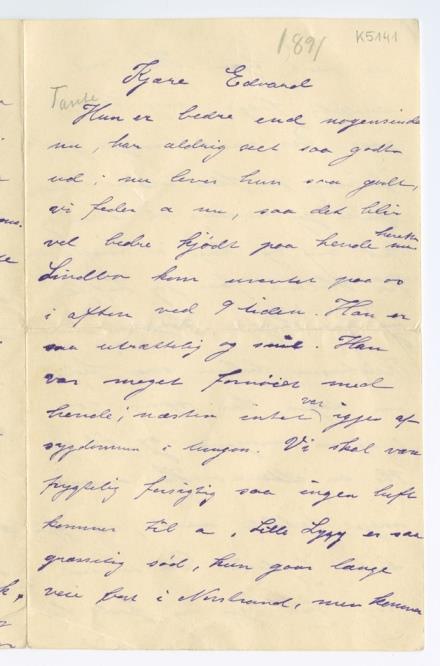 1891
K5141
Kjære Edvard
Tante
Hun er bedre end nogensinde
nu, har aldrig seet saa godt
ud; nu lever hun saa godt,
vi feder a nu, saa det blir
vel bedre kjødt paa hende herefter
Lindboe kom uventet paa os
i aften ved 9 tiden. Han er
saa utrættelig og snil. Han
var meget fornøiet med
hende; næsten intet var igjen af
sygdommen i lungen. Vi skal være
frygtelig forsigtig saa ingen luft
kommer til a, Lille er saa
græsselig sød, hun gaar lange
veie bort i Nordstrand, men kommer